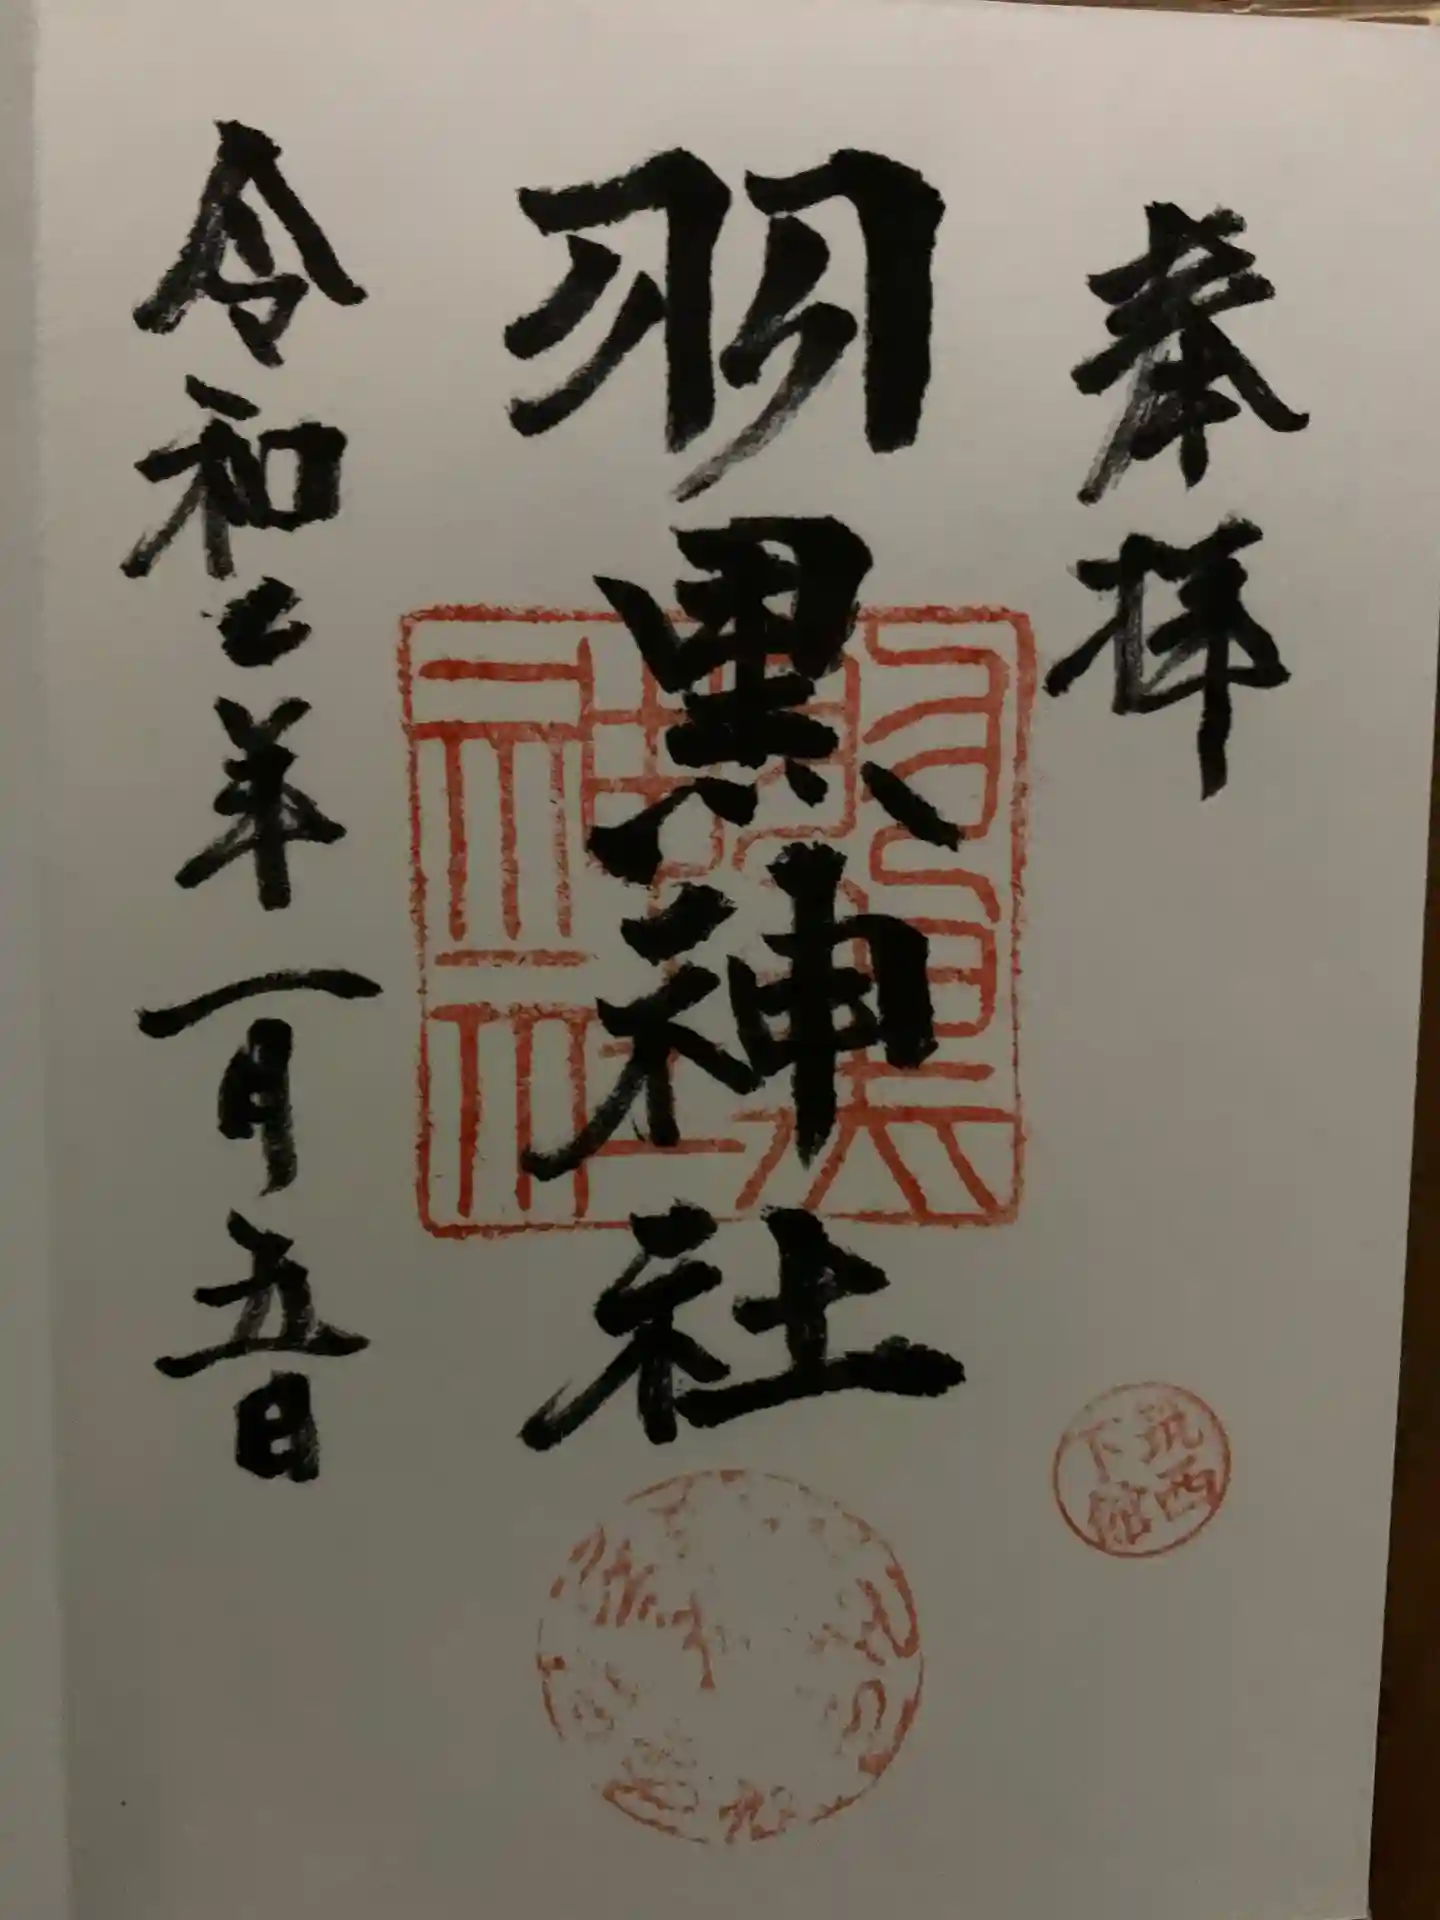 奉拝
羽黒神社
令和二年一月五日
羽黒
神社
筑西
下館